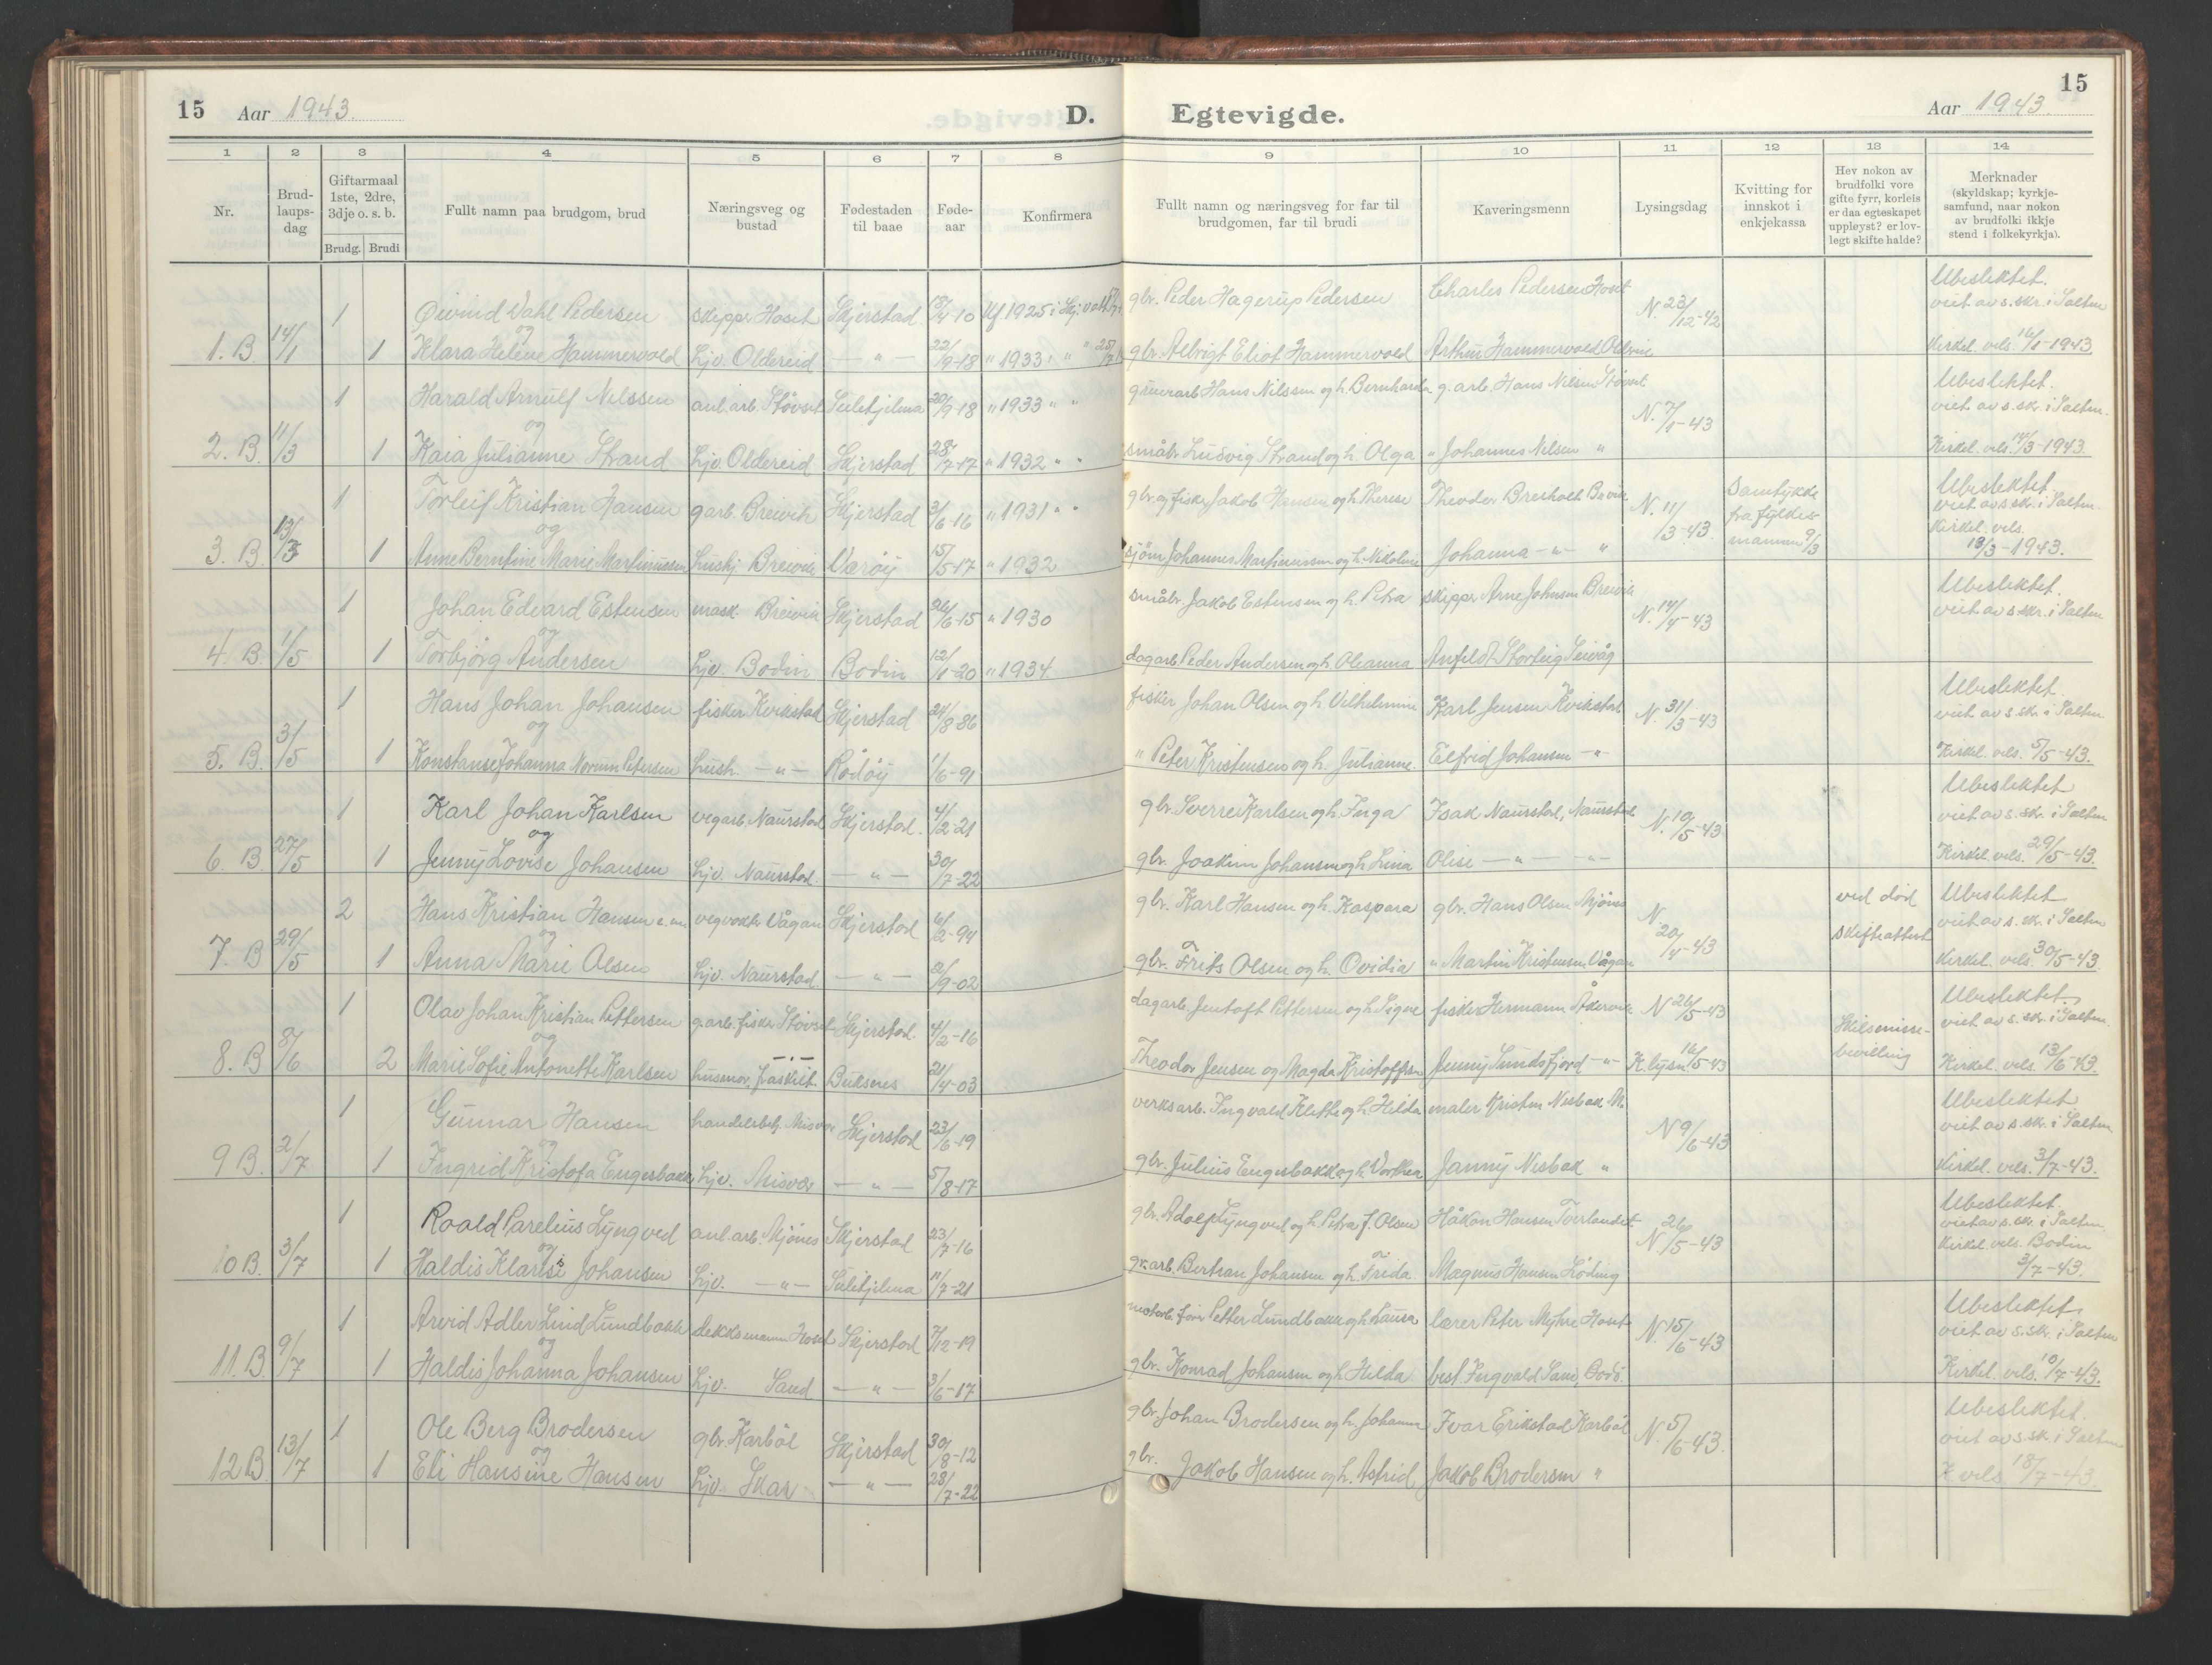 15 Aar 1943. D. Egtevigde. Aar 1943. 15
1 2 3 4 5 6 7 8 9 10 11 12 13 14
Nr. Brud-laups-dag Giftarmaal 1ste, 2dre, 3dje o. s. b. Brudg. Brudi Fullt namn paa brudgom, brud Næringsveg og bustad Fødestaden til baae Føde-aar Konfirmera Fullt namn og næringsveg for far til brudgomen, far til brudi Kaveringsmenn Lysingsdag Kvitting for innskot i enkjekassa Hev nokon av brudfolki vore gifte fyrr, korleis er daa egteskapet uppløyst? er lov-legt skifte halde? Merknader (skyldskap; kyrkje-samfund, naar nokon av brudfolki ikkje stend i folkekyrkja).
1 Øivind Wahl Pedersen skipper Hoset Skjerstad 13/4-10 Kf 1925 i Skj. gbr. Peder Hagerup Pedersen Charles Pedersen Hoset N. 23/12-42 Ubeslektet. viet av s.skr. i Salten
og
1. B. 14/1 1 Klara Helene Hammervold hjv. Oldereid — " — 22/9-18 " 1933 " " gbr. Albrigt Eliot Hammervold Arthur Hammervold Kirkel. vels. 16/1-1943
1 Harald Arnulf Nilssen anl.arb. Støvset Sulitjelma 20/9-18 " 1933 " " gruvearb Hans Nilssen og h. Bernharda g.arb. Hans Nilsen Støvset N. 7/1-43 Ubeslektet. viet av s.skr. i Salten.
og
2. B. 11/3 1 Kaia Julianne Strand hjv. Oldereid Skjerstad 28/7-17 " 1932 " " småbr. Ludvig Strand og h. Olga " Johannes Nilsen " Kirkel. vels. 14/3-1943.
1 Torleif Kristian Hansen garb. Breivik Skjerstad 3/6-16 " 1931 " " gbr og fisker Jakob Hansen og h. Therese Theodor Bresholt Breivik N. 11/3-43. Samtykke fra fylkesmannen 9/3 Ubeslektet viet av s.skr. i Salten.
og
3. B. 13/3 1 Anne Berntine Marie Martinussen hushj Breivik Værøy 15/5-17 " 1932 sjøm Johannes Martinussen og h. Nikoline Johanna — " — " Kirkel. vels. 13/3-1943.
1 Johan Edvard Estensen mask Breivik Skjerstad 26/6-15 " 1930 småbr. Jakob Estensen og h. Petra skipper Arne Johnsen Breivik N. 14/4-43 Ubeslektet. viet av s.skr. i Salten.
og
4. B. 1/5 1 Torbjørg Andersen hjv. Bodin Bodin 12/1-20 " 1934 dagarb. Peder Andersen og h. Oleanna Anfeldt Storteig Seivåg
1 Hans Johan Johansen fisker Kvikstad Skjerstad 24/8-86 fisker Johan Olsen og h. Vilhelmine Karl Jensen Kvikstad N. 31/3-43 Ubeslektet. viet av s.skr. i Salten
og
5. B. 3/5 1 Konstanse Johanna Norum Petersen hush. — " — Rødøy 1/6-91 " Peter Kristensen og h. Julianne. Elfrid Johansen — " — Kirkel. vels. 5/5-43.
1 Karl Johan Karlsen vegarb. Naurstad Skjerstad. 4/2-21 gbr. Sverre Karlsen og h. Inga Isak Naurstad, Naurstad N. 10/5-43 Ubeslektet viet av s.skr. i Salten
og
6. B 27/5 1 Jenny Lovise Johansen hjv. Naurstad. — " — 30/7-22 gbr. Joakim Johansen og h. Lina Olise — " — " — Kirkel. vels. 29/5-43.
2 Hans Kristian Hansen e.m. vegvokter Vågan Skjerstad 6/2-94 gbr. Karl Hansen og h. Kaspara gbr. Hans Olsen Mjønes N 20/4-43 ved død skifteattest Ubeslektet viet av s.skr. i Salten
og
7. B 29/5 1 Anna Marie Olsen hjv. Naurstad. — " — 2/9-02 gbr. Frits Olsen og h. Ovidia " Martin Kristensen Vågan Kirkel. vels. 30/5-43.
1 Olav Johan Kristian Pettersen g.arb. fisker Støvset Skjerstad. 4/2-16 dagarb. Jentoft Pettersen og h. Signe fisker Hermann Åkervik N 26/5-43 Skilsmisse-bevilling Ubeslektet. viet av s.skr. i Salten.
og
8. B 8/6 2 Marie Sofie Antonette Karlsen husmor, fraskilt. Buksnes 21/4-03 Theodor Jensen og Magda Kristoffersen Jenny Sundsfjord — " — K. lysn. 16/5-43 Kirkel. vels. 13/6-43.
1 Gunnar Hansen handelsbetj. Misvær Skjerstad 23/6-19 verksarb. Ingvald Klette og h. Hilda maler Kristen Nesbak M. N 9/6-43 Ubeslektet viet av s.skr. i Salten
og
9 B. 2/7 1 Ingrid Kristofa Engesbakk hjv. Misvær — " — 5/8-17 gbr. Julius Engesbakk og h. Dorthea Janny Nesbak " Kirkel. vels. 3/7-43.
1 Roald Parelius Lyngved anl.arb. Mjønes Skjerstad 23/7-16 gbr. Adolf Lyngved og h. Petra f. Olsen Håkon Hansen Tverlandet N 26/5-43 Ubeslektet. viet av s.skr. i Salten.
og
10 B. 3/7 1 Haldis Klarise Johansen hjv. — " — Sulitjelma 11/7-21 gr.arb. Bertran Johansen og h. Frida Magnus Hansen Løding Kirkel. vels. Bodin 3/7-43.
1 Arvid Adler Lind Lundbakk dekksmann Hoset Skjerstad 7/12-19 Petter Lundbakk og h. Laura lærer Peter Myhre Hoset N. 15/6-43 Ubeslektet viet av s.skr. i Salten
og
11. B. 9/7 1 Haldis Johanna Johansen hjv. Sand — " — 3/6-17 gbr. Konrad Johansen og h. Hilda best. Ingvald Sand, Bodø. Kirkel. vels. 10/7-43.
1 Ole Berg Brodersen gbr. Karbøl Skjerstad 30/8-12 gbr. Johan Brodersen og h. Johanna Ivar Erikstad Karbøl N 5/6-43. Ubeslektet. viet av s.sk. i Salten
og
12 B. 13/7 1 Eli Hansine Hansen hjv. Skar — " — 28/7-22 gbr. Jakob Hansen og h. Astrid Jakob Brodersen " K vels 18/7-43.